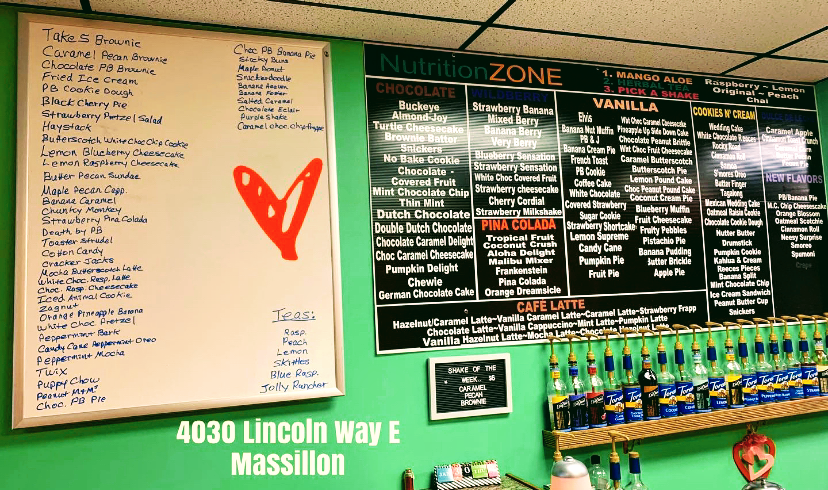 Take 5 Brownie
Caramel Pecan Brownie
Chocolate PB Brownie
Fried Ice Cream
PB Cookie Dough
Black Cherry Pie
Strawberry Pretzel Salad
Haystack
Butterscotch White Choc Chip Cookie
Lemon Blueberry Cheesecake
Lemon Raspberry Cheesecake
Butter Pecan Sundae
Maple Pecan Capp.
Banana Caramel
Chunky Monkey
Strawberry Pina Colada
Death by PB
Toaster Strudel
Cotton Candy
Cracker Jacks
Mocha Butterscotch Latte
White Choc. Rasp. Latte
Choc. Rasp. Cheesecake
Iced Animal Cookie
Zagnut
Orange Pineapple Banana
White Choc Pretzel
Peppermint Bark
Candy Cane Peppermint Oreo
Peppermint Mocha
Twix
Puppy Chow
Peanut M+M's
Choc. PB Pie
Choc PB Banana Pie
Sticky Buns
Maple Donut
Snickerdoodle
Banana Heaven
Banana Foster
Salted Caramel
Chocolate Eclair
Purple Shake
Caramel Choc. Chip Frappe
Teas:
Rasp.
Peach
Lemon
Skittles
Blue Rasp.
Jolly Rancher
NutritionZONE
1. MANGO ALOE
2. HERBAL TEA
3. PICK A SHAKE
Raspberry ~ Lemon
Original ~ Peach
Chai
CHOCOLATE
Buckeye
Almond-Joy
Turtle Cheesecake
Brownie Batter
Snickers
No Bake Cookie
Chocolate -
Covered Fruit
Mint Chocolate Chip
Thin Mint
Dutch Chocolate
Double Dutch Chocolate
Chocolate Caramel Delight
Choc Caramel Cheesecake
Pumpkin Delight
Chewie
German Chocolate Cake
WILDBERRY
Strawberry Banana
Mixed Berry
Banana Berry
Very Berry
Blueberry Sensation
Strawberry Sensation
White Choc Covered Fruit
Strawberry cheesecake
Cherry Cordial
Strawberry Milkshake
PINA COLADA
Tropical Fruit
Coconut Crush
Aloha Delight
Malibu Mixer
Frankenstein
Pina Colada
Orange Dreamsicle
VANILLA
Elvis
Banana Nut Muffin
PB & J
Banana Cream Pie
French Toast
PB Cookie
Coffee Cake
White Chocolate
Covered Strawberry
Sugar Cookie
Strawberry Shortcake
Lemon Supreme
Candy Cane
Pumpkin Pie
Fruit Pie
Wht Choc Caramel Cheesecake
Pineapple Up Side Down Cake
Chocolate Peanut Brittle
Wht Choc Fruit Cheesecake
Caramel Butterscotch
Butterscotch Pie
Lemon Pound Cake
Choc Peanut Pound Cake
Coconut Cream Pie
Blueberry Muffin
Fruit Cheesecake
Fruity Pebbles
Pistachio Pie
Banana Pudding
Butter Brickle
Apple Pie
COOKIES N' CREAM
Wedding Cake
White Chocolate Reeces
Rocky Road
Cinnamon Roll
Samoa
S'mores Oreo
Butter Finger
Tagalong
Mexican Wedding Cake
Oatmeal Raisin Cookie
Chocolate Cookie Dough
Nutter Butter
Drumstick
Pumpkin Cookie
Kahlua & Cream
Reeces Pieces
Banana Split
Mint Chocolate Chip
Ice Cream Sandwich
Peanut Butter Cup
Snickers
Caramel Apple
NEW FLAVORS
PB/Banana Pie
M.C. Chip Cheesecake
Orange Blossom
Oatmeal Scotchie
Cinnamon Roll
Reesy Surprise
Smores
Spumoni
CAFE LATTE
Hazelnut/Caramel Latte~Vanilla Caramel Latte~Strawberry Frapp
Chocolate Latte~Vanilla Cappuccino~Mint Latte~Pumpkin Latte
Vanilla Hazelnut Latte~Mocha Latte~Chocolate Hazelnut Latte
SHAKE OF THE
WEEK.. $6
CARAMEL
PECAN
BROWNIE
Torani
4030 Lincoln Way E
Massillon